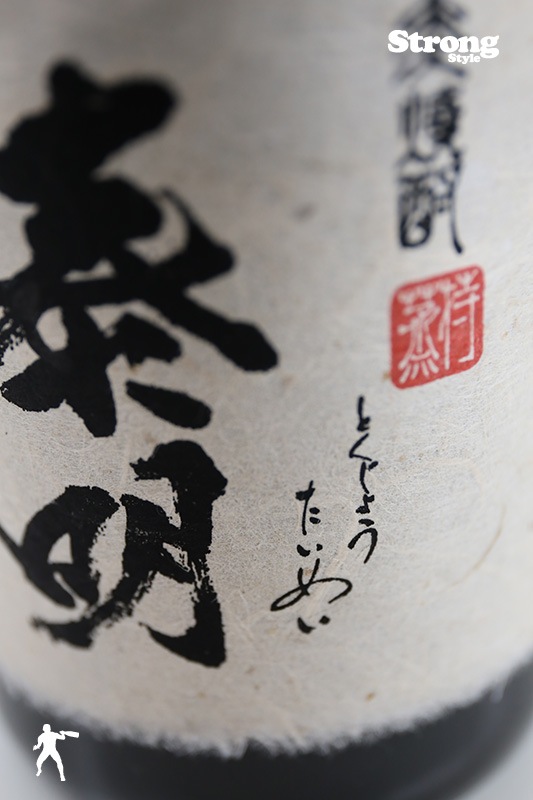 Strong
Style
麦焼酎
特蒸
とくじょう
たいめい
泰明